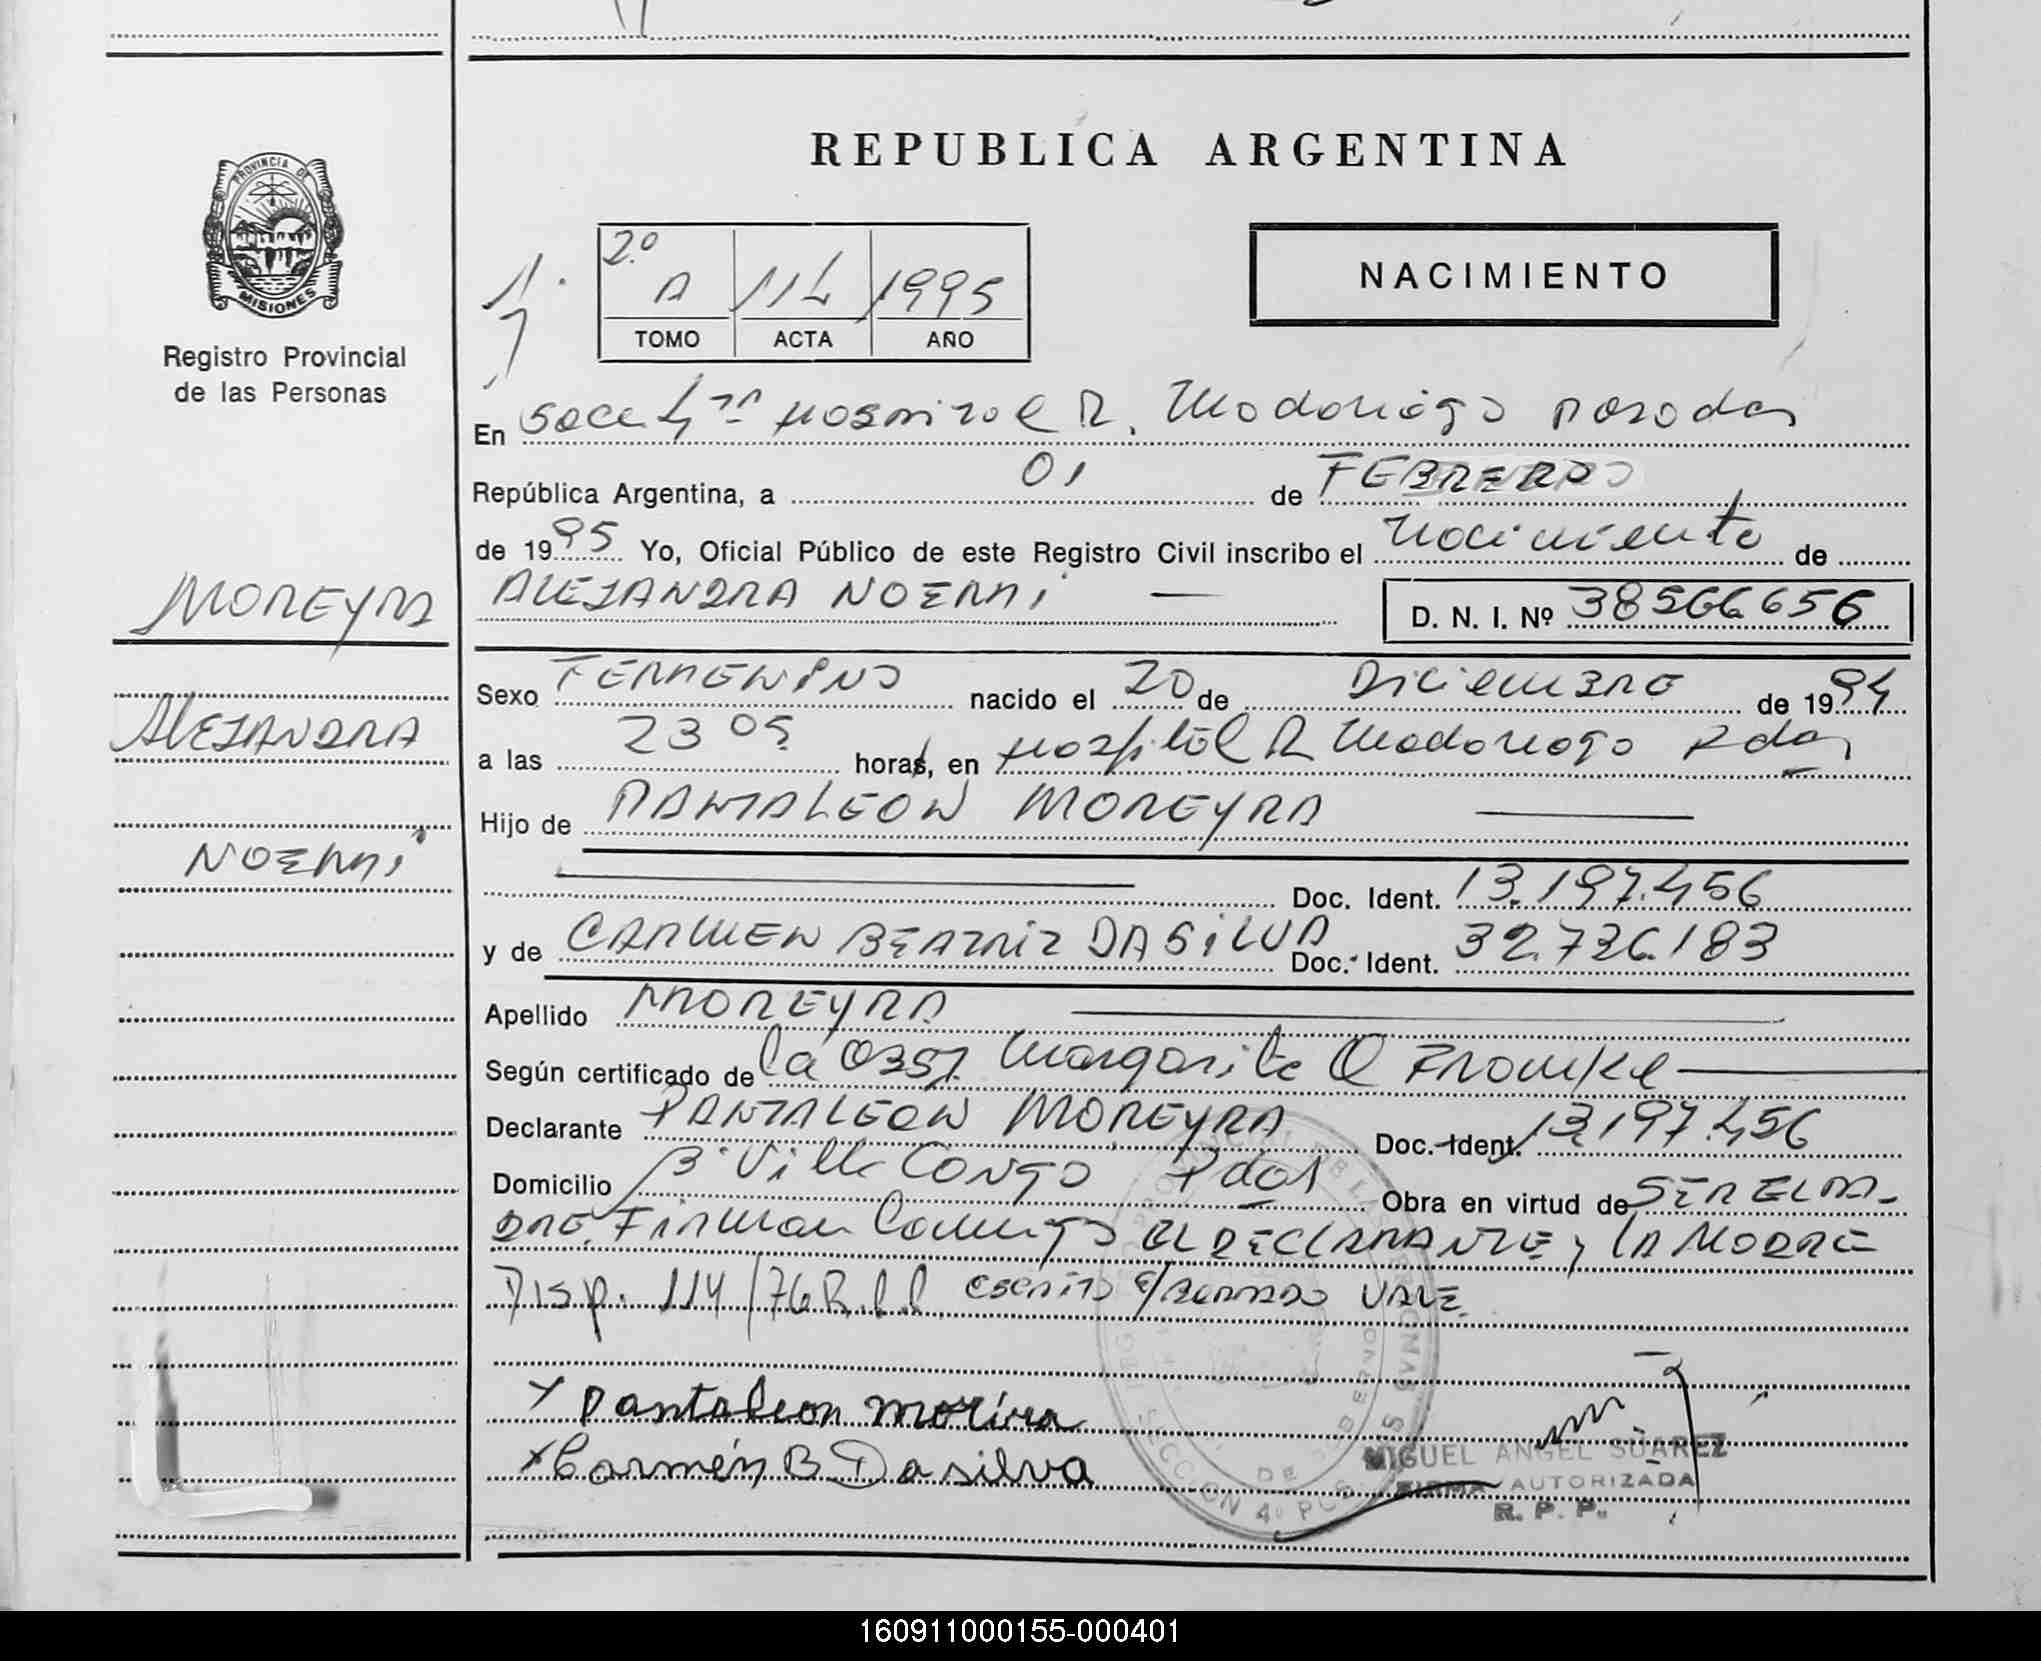 REPUBLICA ARGENTINA
PROVINCIA DE
MISIONES
Registro Provincial
de las Personas
NACIMIENTO
2º
A 114 1995
TOMO ACTA AÑO
En Secc 4ta Hospital R. Madariaga Posadas
República Argentina, a 01 de FEBRERO
de 1995 Yo, Oficial Público de este Registro Civil inscribo el Nacimiento de
ALEJANDRA NOEMI — D. N. I. Nº 38566656
MOREYRA
ALEJANDRA
NOEMI
Sexo FEMENINO nacido el 20 de Diciembre de 1994
a las 23 05 horas, en Hospital R Madariaga Pdas
Hijo de PANTALEON MOREYRA
Doc. Ident. 13.197.456
y de CARMEN BEATRIZ DA SILVA Doc. Ident. 32.736.183
Apellido MOREYRA
Según certificado de la Obst. Margarita Q
Declarante PANTALEON MOREYRA Doc. Ident. 13.197.456
Domicilio B° Villa Longo Pdas Obra en virtud de SER EL PA-
DRE. Firman Conmigo EL DECLARANTE y LA MADRE
Disp. 114/76 R.P.P. escrito VALE.
Pantaleon moreira
Carmén B Da silva
MIGUEL ANGEL SUAREZ
FIRMA AUTORIZADA
R. P. P.
160911000155-000401